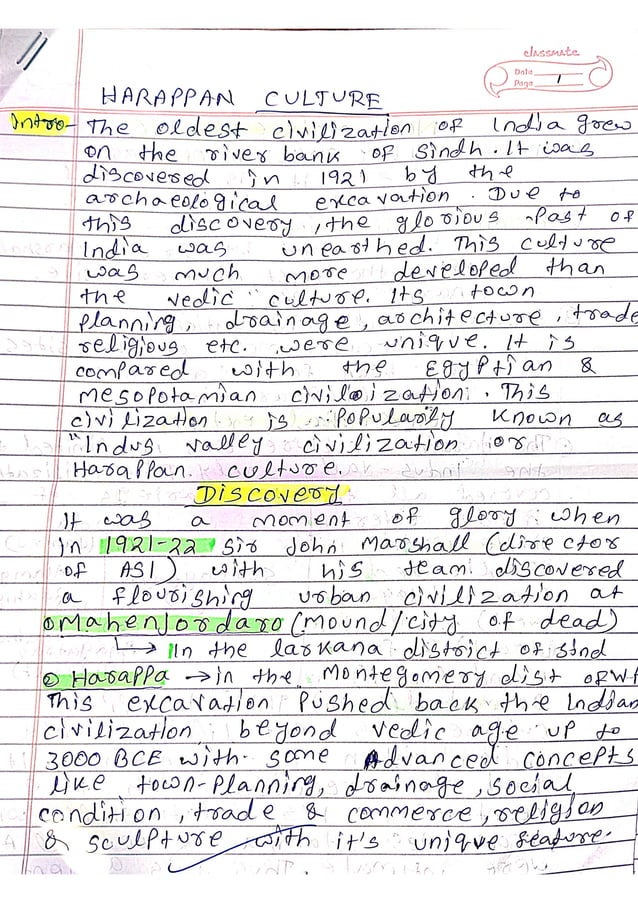 classmate
Date
Page 1
HARAPPAN CULTURE
Intro- The oldest civilization of India grew
on the river bank of Sindh. It was
discovered in 1921 by the
archaeological excavation. Due to
this discovery, the glorious past of
India was unearthed. This culture
was much more developed than
the vedic culture. Its town
planning, drainage, architecture, trade
religious etc. were unique. It is
compared with the Egyptian &
mesopotamian civilization. This
civilization is popularly known as
"Indus valley civilization or
Harappan culture.
Discovery
It was a moment of glory when
in 1921-22 Sir John Marshall (director
of ASI) with his team discovered
a flourishing urban civilization at
① Mahenjordaro (mound/city of dead)
↳ In the larkana district of sind
② Harappa → in the Montegomery dist of
This excavation pushed back the Indian
civilization beyond vedic age up to
3000 BCE with some Advanced concepts
like town-planning, drainage, social
condition, trade & commerce, religion
& sculpture with it's unique feature.